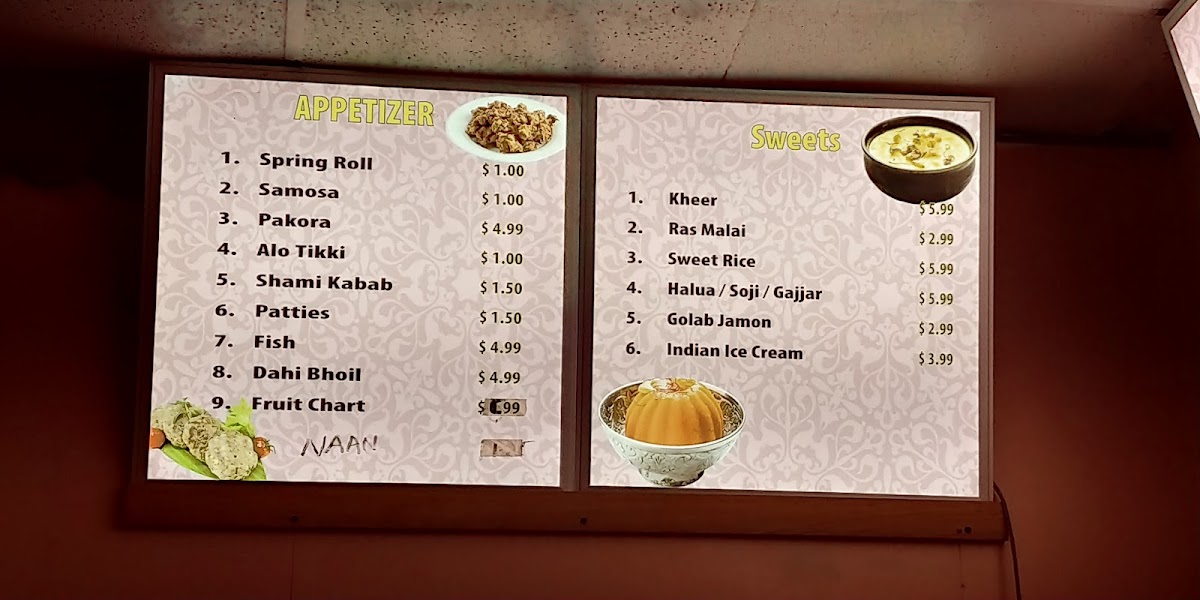 APPETIZER
1. Spring Roll $ 1.00
2. Samosa $ 1.00
3. Pakora $ 4.99
4. Alo Tikki $ 1.00
5. Shami Kabab $ 1.50
6. Patties $ 1.50
7. Fish $ 4.99
8. Dahi Bhoil $ 4.99
9. Fruit Chart
NAAN
Sweets
1. Kheer $ 5.99
2. Ras Malai $ 2.99
3. Sweet Rice $ 5.99
4. Halua / Soji / Gajjar $ 5.99
5. Golab Jamon $ 2.99
6. Indian Ice Cream $ 3.99